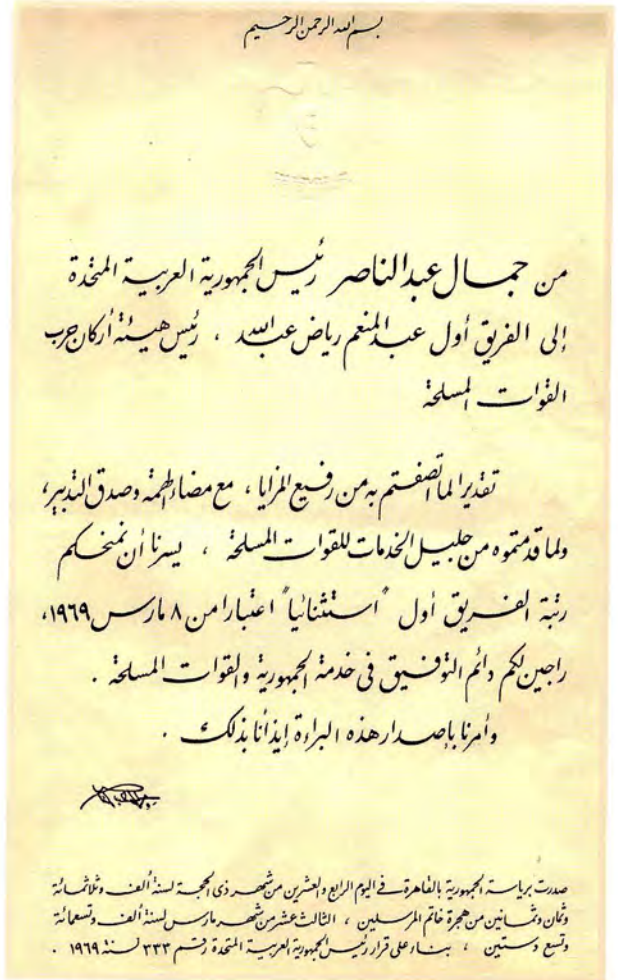 بسم الله الرحمن الرحيم
من جمال عبد الناصر رئيس الجمهورية العربية المتحدة
إلى الفريق أول عبد المنعم رياض عبد الله ، رئيس هيئة أركان حرب
القوات المسلحة
تقديرا لما اتصفتم به من رفيع المزايا ، مع مضاء الهمة وصدق التدبير ،
ولما قدمتموه من جليل الخدمات للقوات المسلحة ، يسرنا أن نمنحكم
رتبة الفريق أول "استثنائيا" اعتبارا من ٨ مارس ١٩٦٩ ،
راجين لكم دائم التوفيق في خدمة الجمهورية والقوات المسلحة .
وأمرنا بإصدار هذه البراءة إيذانا بذلك .
صدرت برياسة الجمهورية بالقاهرة في اليوم الرابع والعشرين من شهر ذى الحجة لسنة ألف وثلاثمائة
وثمان وثمانين من هجرة خاتم المرسلين ، الثالث عشر من شهر مارس لسنة ألف وتسعمائة
وتسع وستين ، بناء على قرار رئيس الجمهورية العربية المتحدة رقم ٣٣٣ لسنة ١٩٦٩ .